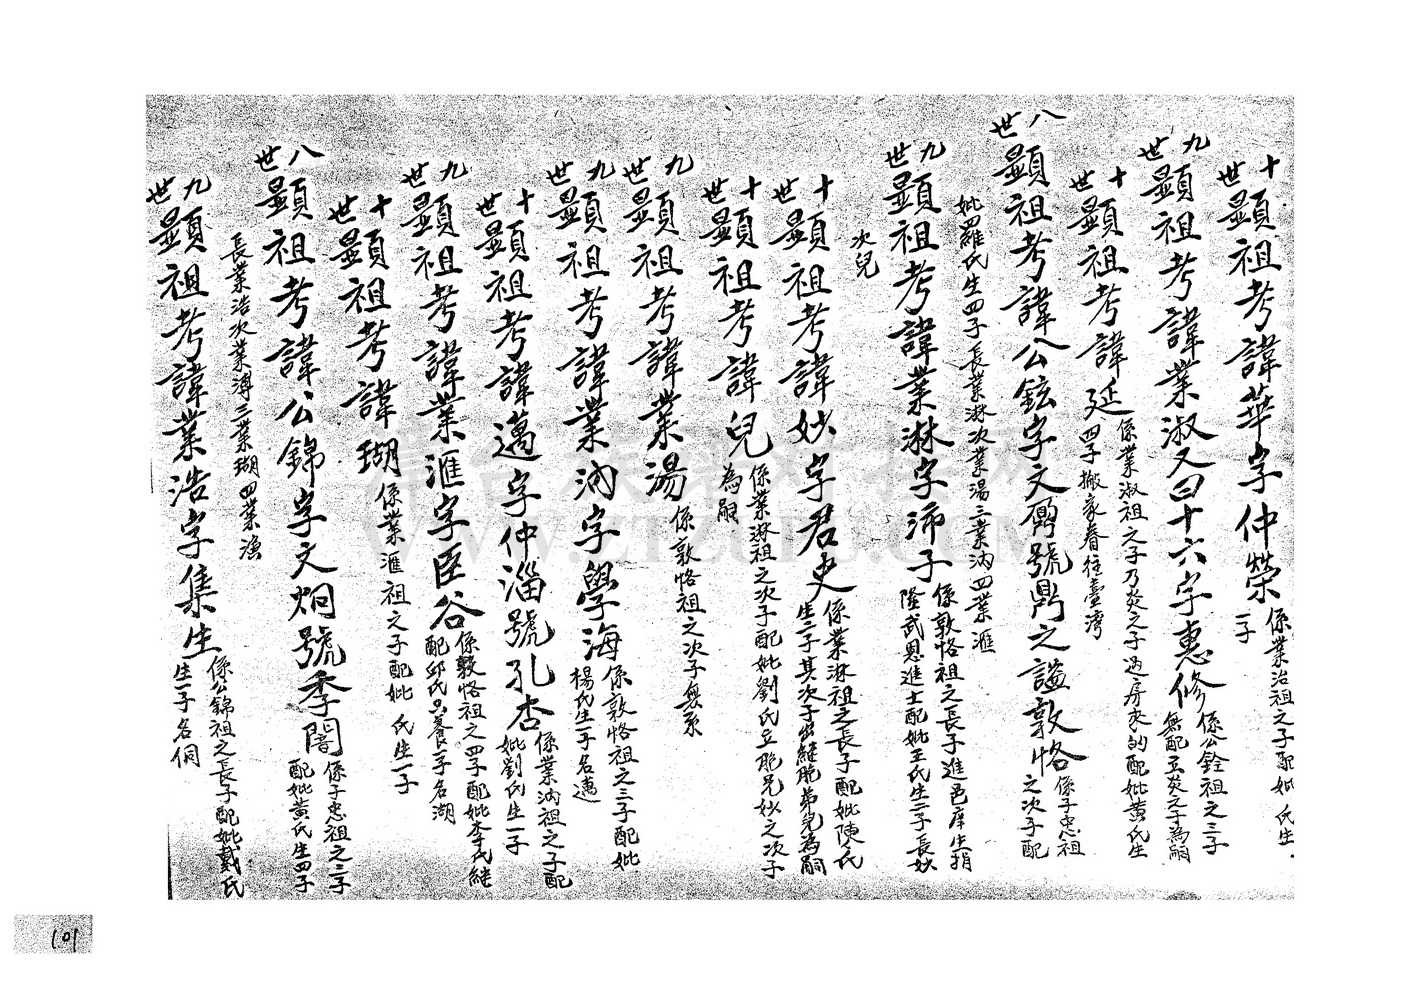 十世顯祖考諱華字仲榮
係業治祖之子配妣 氏生
一子
九世顯祖考諱業淑又曰十六字惠修
係公銓祖之三子
無配立炎之子為嗣
十世顯祖考諱延
係業淑祖之子乃炎之子過房來的配妣黃氏生
四子搬家眷往臺灣
八世顯祖考諱公鉉字文 號鼎之謚敦恪
係子忠祖
之次子配
妣四羅氏生四子長業淋次業湯三業汭四業滙
九世顯祖考諱業淋字沛子
係敦恪祖之長子進邑庠生捐
隆武恩進士配妣王氏生二子長妙
次兒
十世顯祖考諱妙字君史
係業淋祖之長子配妣陳氏
生二子其次子出繼胞弟兒為嗣
十世顯祖考諱兒
係業淋祖之次子配妣劉氏立胞兄妙之次子
為嗣
九世顯祖考諱業湯
係敦恪祖之次子無系
九世顯祖考諱業汭字學海
係敦恪祖之三子配妣
楊氏生一子名邁
十世顯祖考諱邁字仲淄號孔杏
係業汭祖之子配
妣劉氏生一子
九世顯祖考諱業滙字臣谷
係敦恪祖之四子配妣李氏繼
配邱氏只養一子名湖
十世顯祖考諱瑚
係業滙祖之子配妣 氏生一子
八世顯祖考諱公錦字文炯號季闇
係子忠祖之三子
配妣黃氏生四子
長業浩次業溥三業瑚四業漁
九世顯祖考諱業浩字集生
係公錦祖之長子配妣戴氏
生一子名侗
WWW.ZTZUPU.COM
101